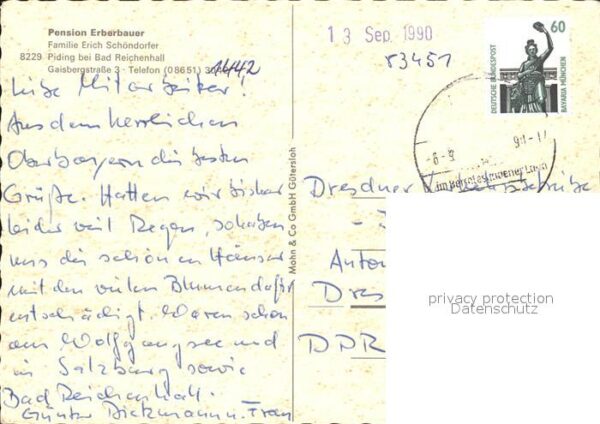 Pension Erberbauer
Familie Erich Schöndorfer
8229 Piding bei Bad Reichenhall
Gaisbergstraße 3 · Telefon (08651)
1442
Liebe Mitarbeiter!
Aus dem herrlichen
Oberbayern die besten
Grüße. Hatten wir bisher
leider viel Regen, so haben
uns die schönen Häuser
mit den vielen Blumen dafür
entschädigt. Waren schon
am Wolfgangsee und
in Salzburg sowie
Bad Reichenhall.
Günter Dietzmann u. Frau
Mohn & Co GmbH Gütersloh
13 Sep. 1990
83451
60
DEUTSCHE BUNDESPOST
BAVARIA MÜNCHEN
Dresdner
Anton
Dres
DDR
privacy protection
Datenschutz